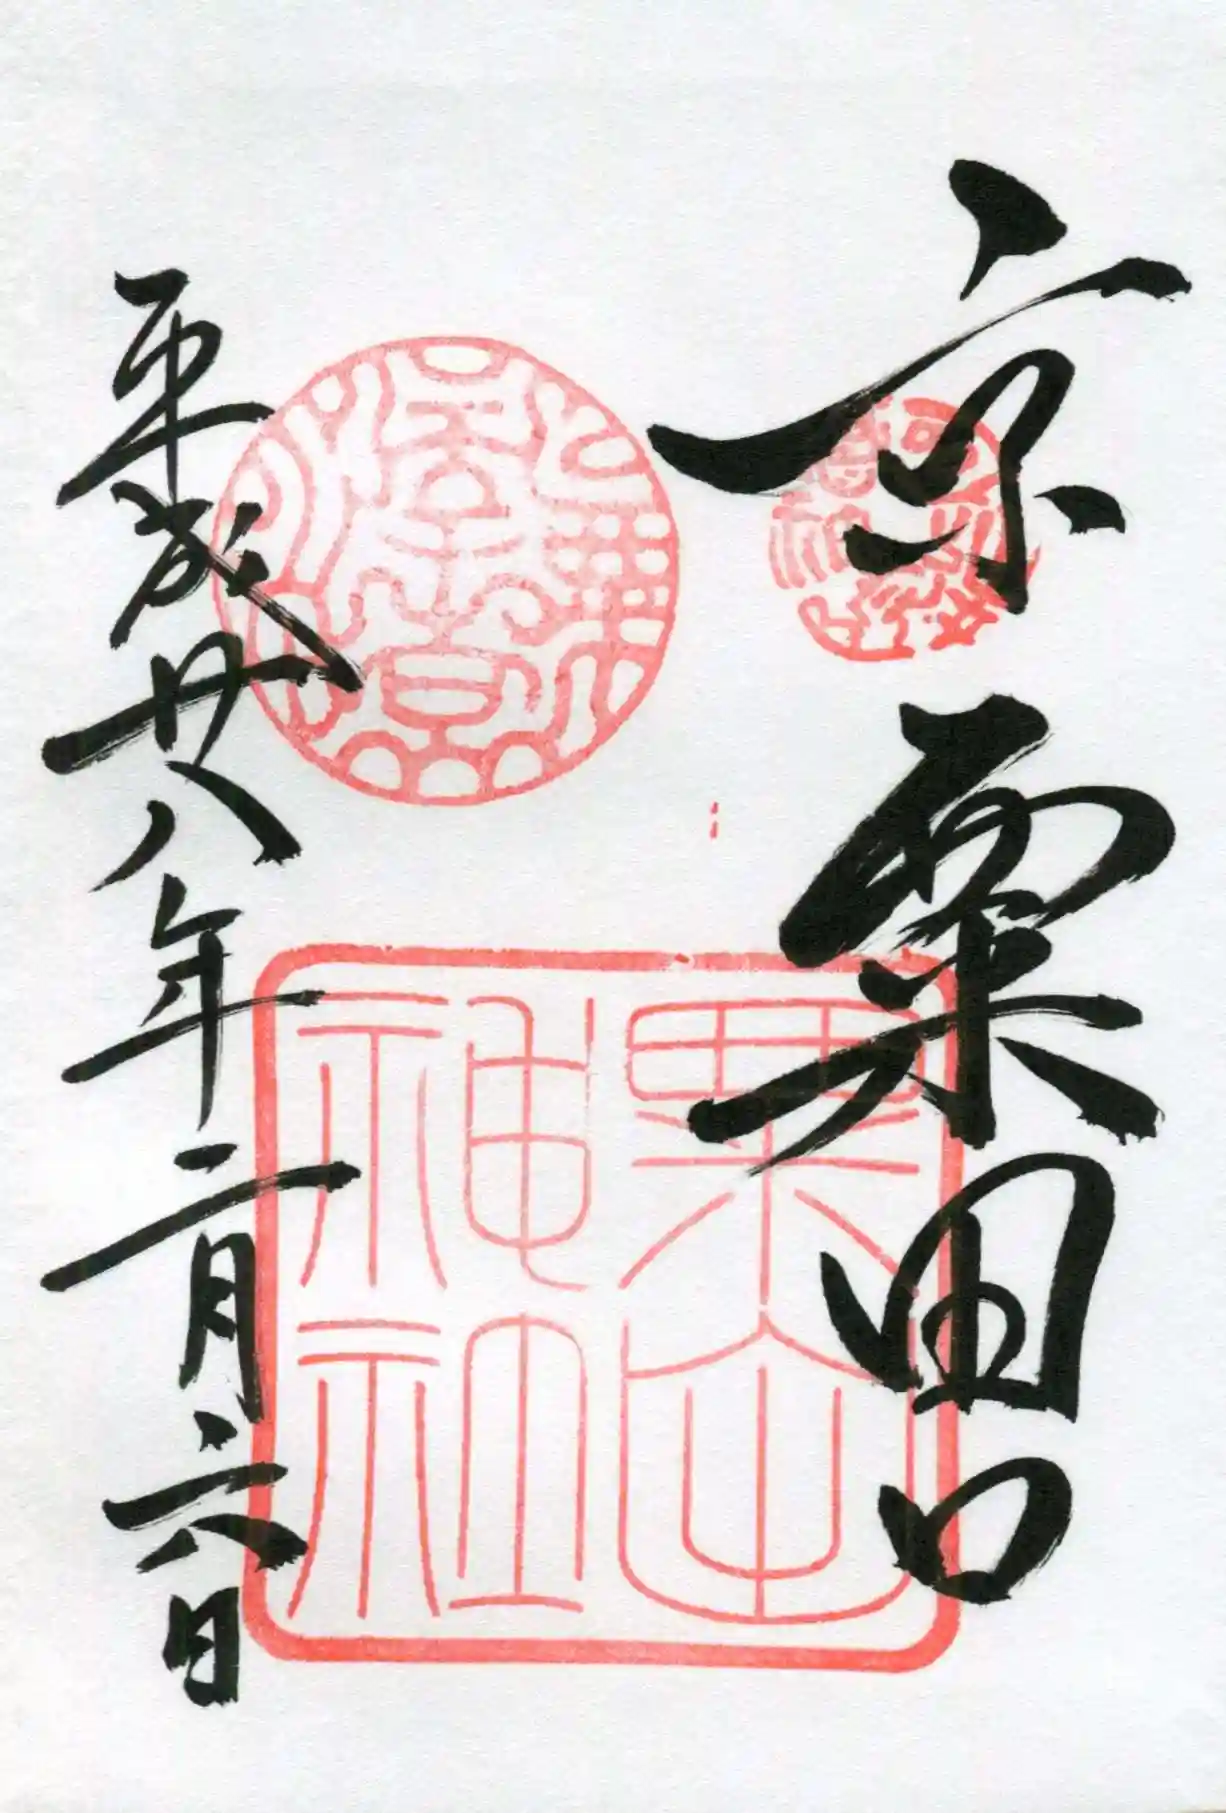 京 粟田口
平成廿八年二月六日
粟田神社